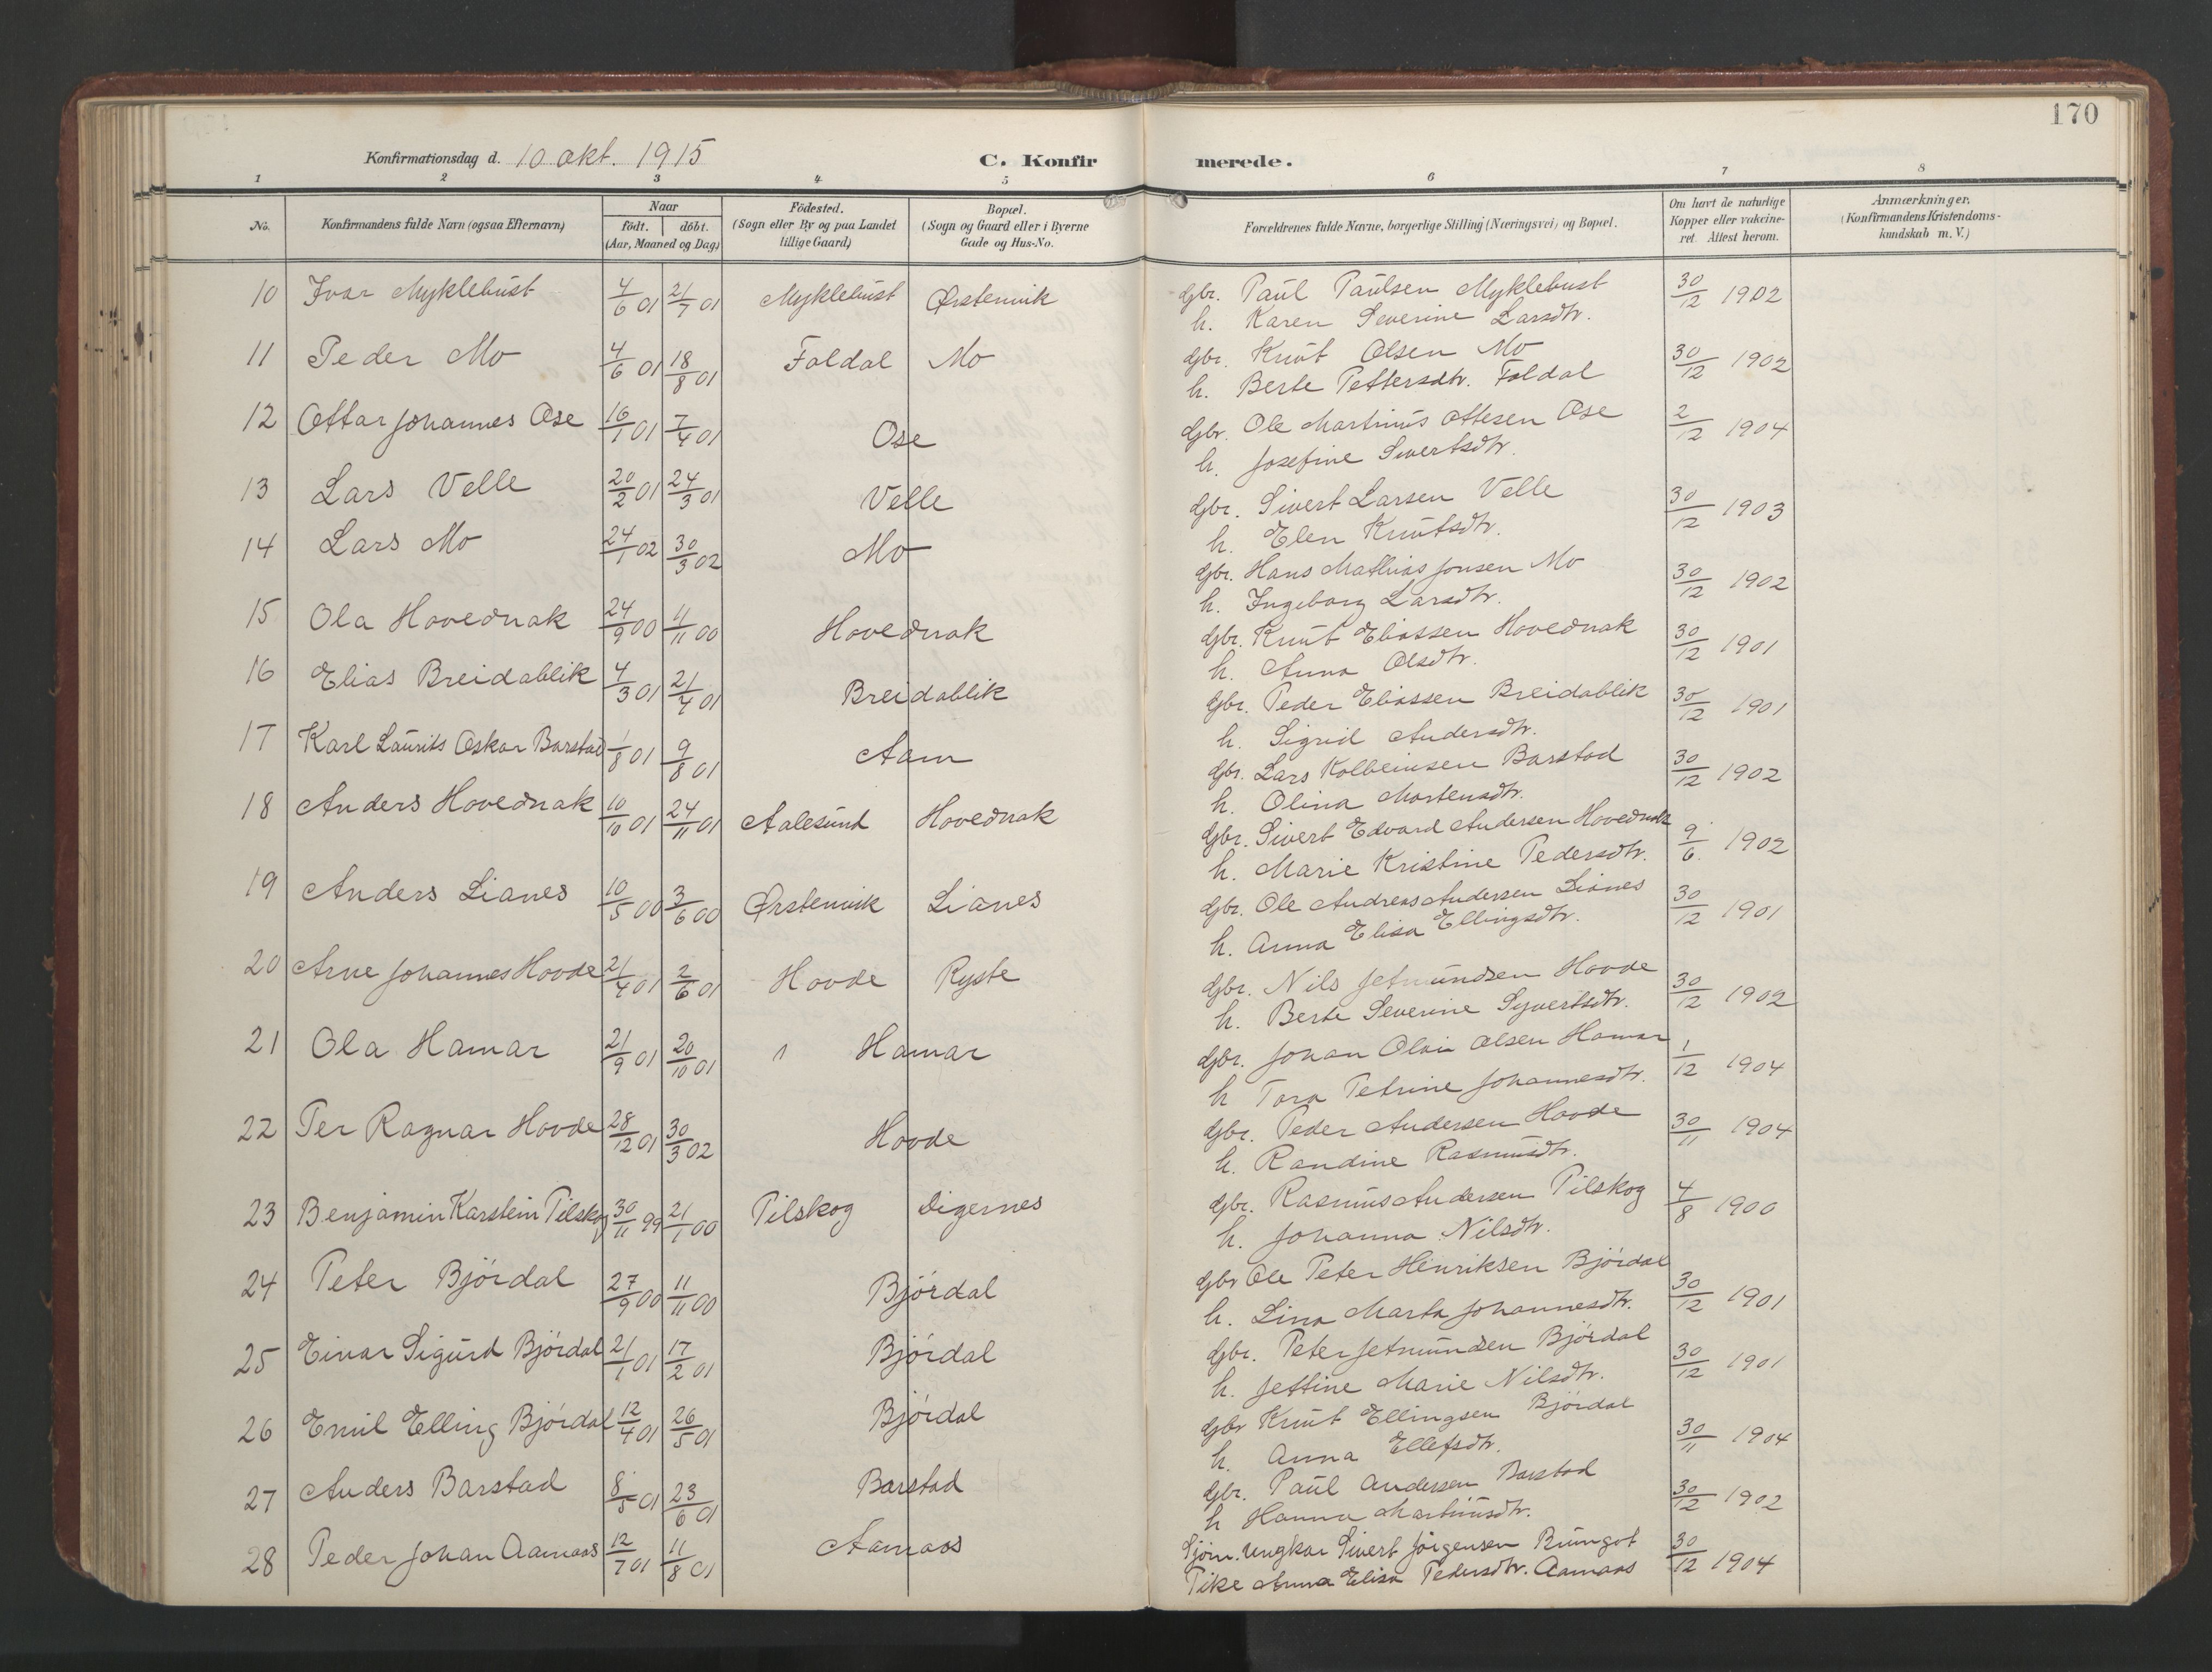 170
Konfirmationsdag d. 10 okt. 1915
C. Konfir merede.
1 2 3 4 5 6 7 8
No.
Konfirmandens fulde Navn (ogsaa Efternavn)
Naar
födt. döbt.
(Aar, Maaned og Dag)
Födested.
(Sogn eller By og paa Landet
tillige Gaard)
Bopæl.
(Sogn og Gaard eller i Byerne
Gade og Hus-No.
Forældrenes fulde Navne, borgerlige Stilling (Næringsvei) og Bopæl.
Om havt de naturlige
Kopper eller vakcine-
ret. Attest herom.
Anmærkninger.
(Konfirmandens Kristendoms-
kundskab m. V.)
10 Ivar Myklebust 4/6 01 21/7 01 Myklebust Ørstenvik Gbr. Paul Paulsen Myklebust 30/12 1902
h. Karen Severine Larsdtr.
11 Peder Mo 4/6 01 18/8 01 Foldal Mo Gbr. Knut Olsen Mo 30/12 1902
h. Berte Pettersdtr. Foldal
12 Ottar Johannes Ose 16/1 01 7/4 01 Ose Gbr. Ole Martinus Ottesen Ose 2/12 1904
h. Josefine Sivertsdtr.
13 Lars Velle 20/2 01 24/3 01 Velle Gbr. Sivert Larsen Velle 30/12 1903
h. Elen Knutsdtr.
14 Lars Mo 24/1 02 30/3 02 Mo Gbr. Hans Mathias Jonsen Mo 30/12 1902
h. Ingeborg Larsdtr.
15 Ola Hovednak 24/9 00 4/11 00 Hovednak Gbr. Knut Eliassen Hovednak 30/12 1901
h. Anna Olsdtr.
16 Elias Breidablik 4/3 01 21/4 01 Breidablik Gbr. Peder Eliassen Breidablik 30/12 1901
h. Sigrid Andersdtr.
17 Karl Laurits Oskar Barstad 1/8 01 9/8 01 Aam Gbr. Lars Kolbeinsen Barstad 30/12 1902
h. Olina Mortensdtr.
18 Anders Hovednak 10/10 01 24/11 01 Aalesund Hovednak Gbr. Sivert Edvard Andersen Hovednak 9/6 1902
h. Marie Kristine Pedersdtr.
19 Anders Lianes 10/5 00 3/6 00 Ørstenvik Lianes Gbr. Ole Andreas Andersen Lianes 30/12 1901
h. Anna Elisa Ellingsdtr.
20 Arne Johannes Hovde 21/4 01 2/6 01 Hovde Ryste Gbr. Nils Jetmundsen Hovde 30/12 1902
h. Berte Severine Syvertsdtr.
21 Ola Hamar 21/9 01 20/10 01 Hamar Gbr. Johan Olai Olsen Hamar 1/12 1904
h Tora Petrine Johannesdtr.
22 Per Ragnar Hovde 28/12 01 30/3 02 Hovde Gbr. Peder Andersen Hovde 30/11 1904
h. Randine Rasmusdtr.
23 Benjamin Karstein Pilskog 30/11 99 21/1 00 Pilskog Digernes Gbr. Rasmus Andersen Pilskog 4/8 1900
h. Johanna Nilsdtr.
24 Peter Björdal 27/9 00 11/11 00 Björdal Gbr Ole Peter Henriksen Björdal 30/12 1901
h. Lina Marta Johannesdtr.
25 Einar Sigurd Björdal 21/1 01 17/2 01 Björdal Gbr. Peter Jetmundsen Björdal 30/12 1901
h. Jettine Marie Nilsdtr.
26 Emil Elling Björdal 12/4 01 26/5 01 Björdal Gbr Knut Ellingsen Björdal 30/11 1904
h. Anna Ellefsdtr.
27 Anders Barstad 8/5 01 23/6 01 Barstad Gbr. Paul Andersen Barstad 30/12 1902
h Hanna Martinusdtr.
28 Peder Johan Aamaas 12/7 01 11/8 01 Aamaas Sjöm. Ungkar Sivert Jörgensen Rungot 30/12 1904
Pike Anna Elisa Pedersdtr. Aamaas